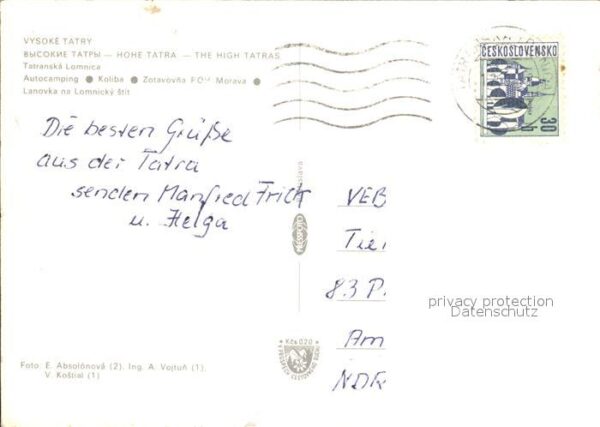 VYSOKÉ TATRY
ВЫСОКИЕ ТАТРЫ — HOHE TATRA — THE HIGH TATRAS
Tatranská Lomnica
Autocamping ● Koliba ● Zotavovňa ROH Morava ●
Lanovka na Lomnický štít
ČESKOSLOVENSKO
30 h
Die besten Grüße
aus der Tatra
senden Manfred Frick
u. Helga
VEB
Tie
83 P.
Am
NDR
privacy protection
Datenschutz
Kčs 0,20
Foto: E. Absolónová (2), Ing. A. Vojtuň (1),
V. Koštial (1)